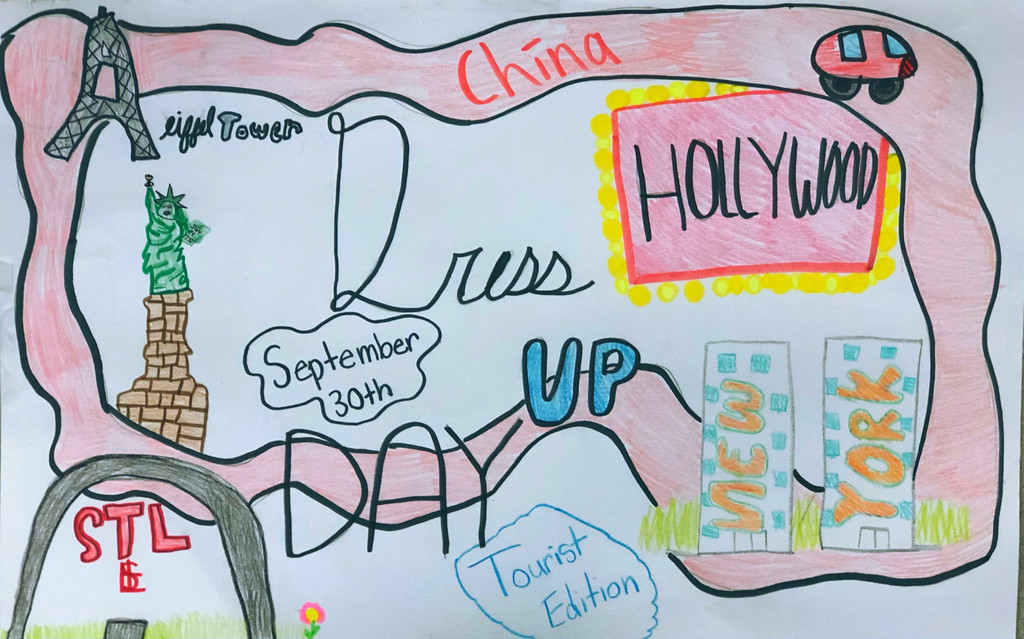 China
eiffel Tower
HOLLYWOOD
Dress
September
30th
UP
NEW
YORK
DAY
STL
Tourist
Edition